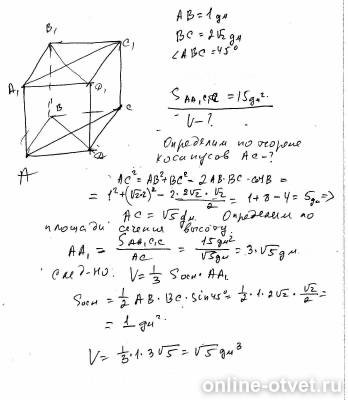 AB = 1 дм
BC = 2√2 дм
∠ABC = 45°
B₁
C₁
A₁
D₁
B
C
A
S AA₁C₁C = 15 дм².
V - ?
Определим по теореме
косинусов AC - ?
AC² = AB² + BC² - 2AB·BC·cosB =
= 1² + (√2·2)² - 2·2√2·√2/2 = 1 + 8 - 4 = 5 дм =>
AC = √5 дм. Определим по
площади сечения высоту
AA₁ = S AA₁C₁C / AC = 15 дм² / √5 дм = 3·√5 дм.
след-но: V = 1/3 Sосн·AA₁
Sосн = 1/2 AB·BC·sin45° = 1/2·1·2√2·√2/2 =
= 1 дм².
V = 1/3·1·3√5 = √5 дм³
online-otvet.ru